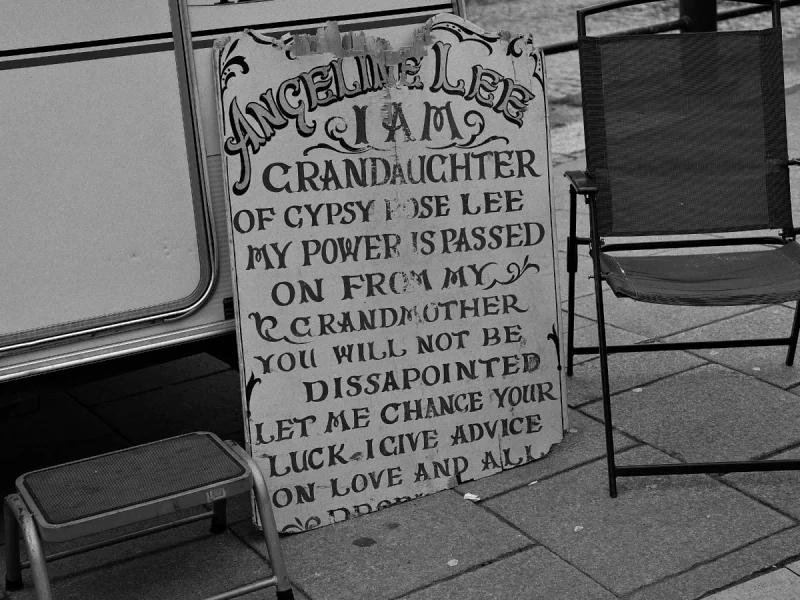 ANGELINE LEE
I AM
GRANDAUGHTER
OF GYPSY ROSE LEE
MY POWER IS PASSED
ON FROM MY
GRANDMOTHER
YOU WILL NOT BE
DISSAPOINTED
LET ME CHANGE YOUR
LUCK. I GIVE ADVICE
ON LOVE AND ALL